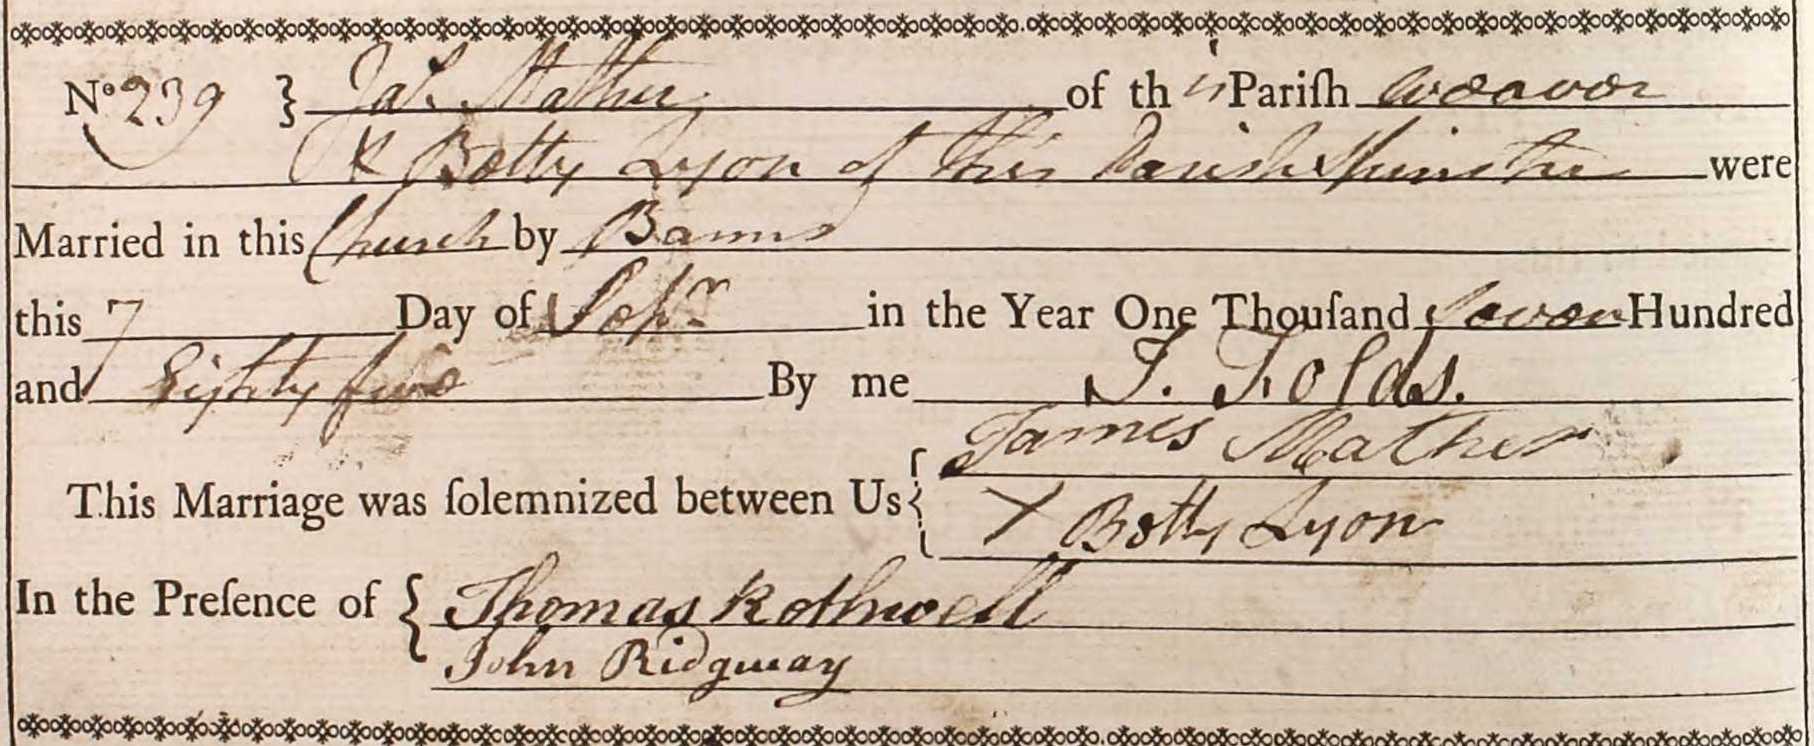 No 239 } Jas. Mather of this Pariſh Weaver
& Betty Lyon of this Parish Spinster were
Married in this Church by Banns
this 7 Day of Sepr in the Year One Thouſand Seven Hundred
and Eighty two By me J. Folds.
This Marriage was ſolemnized between Us { James Mather
X Betty Lyon
In the Preſence of { Thomas Rothwell
John Ridgway